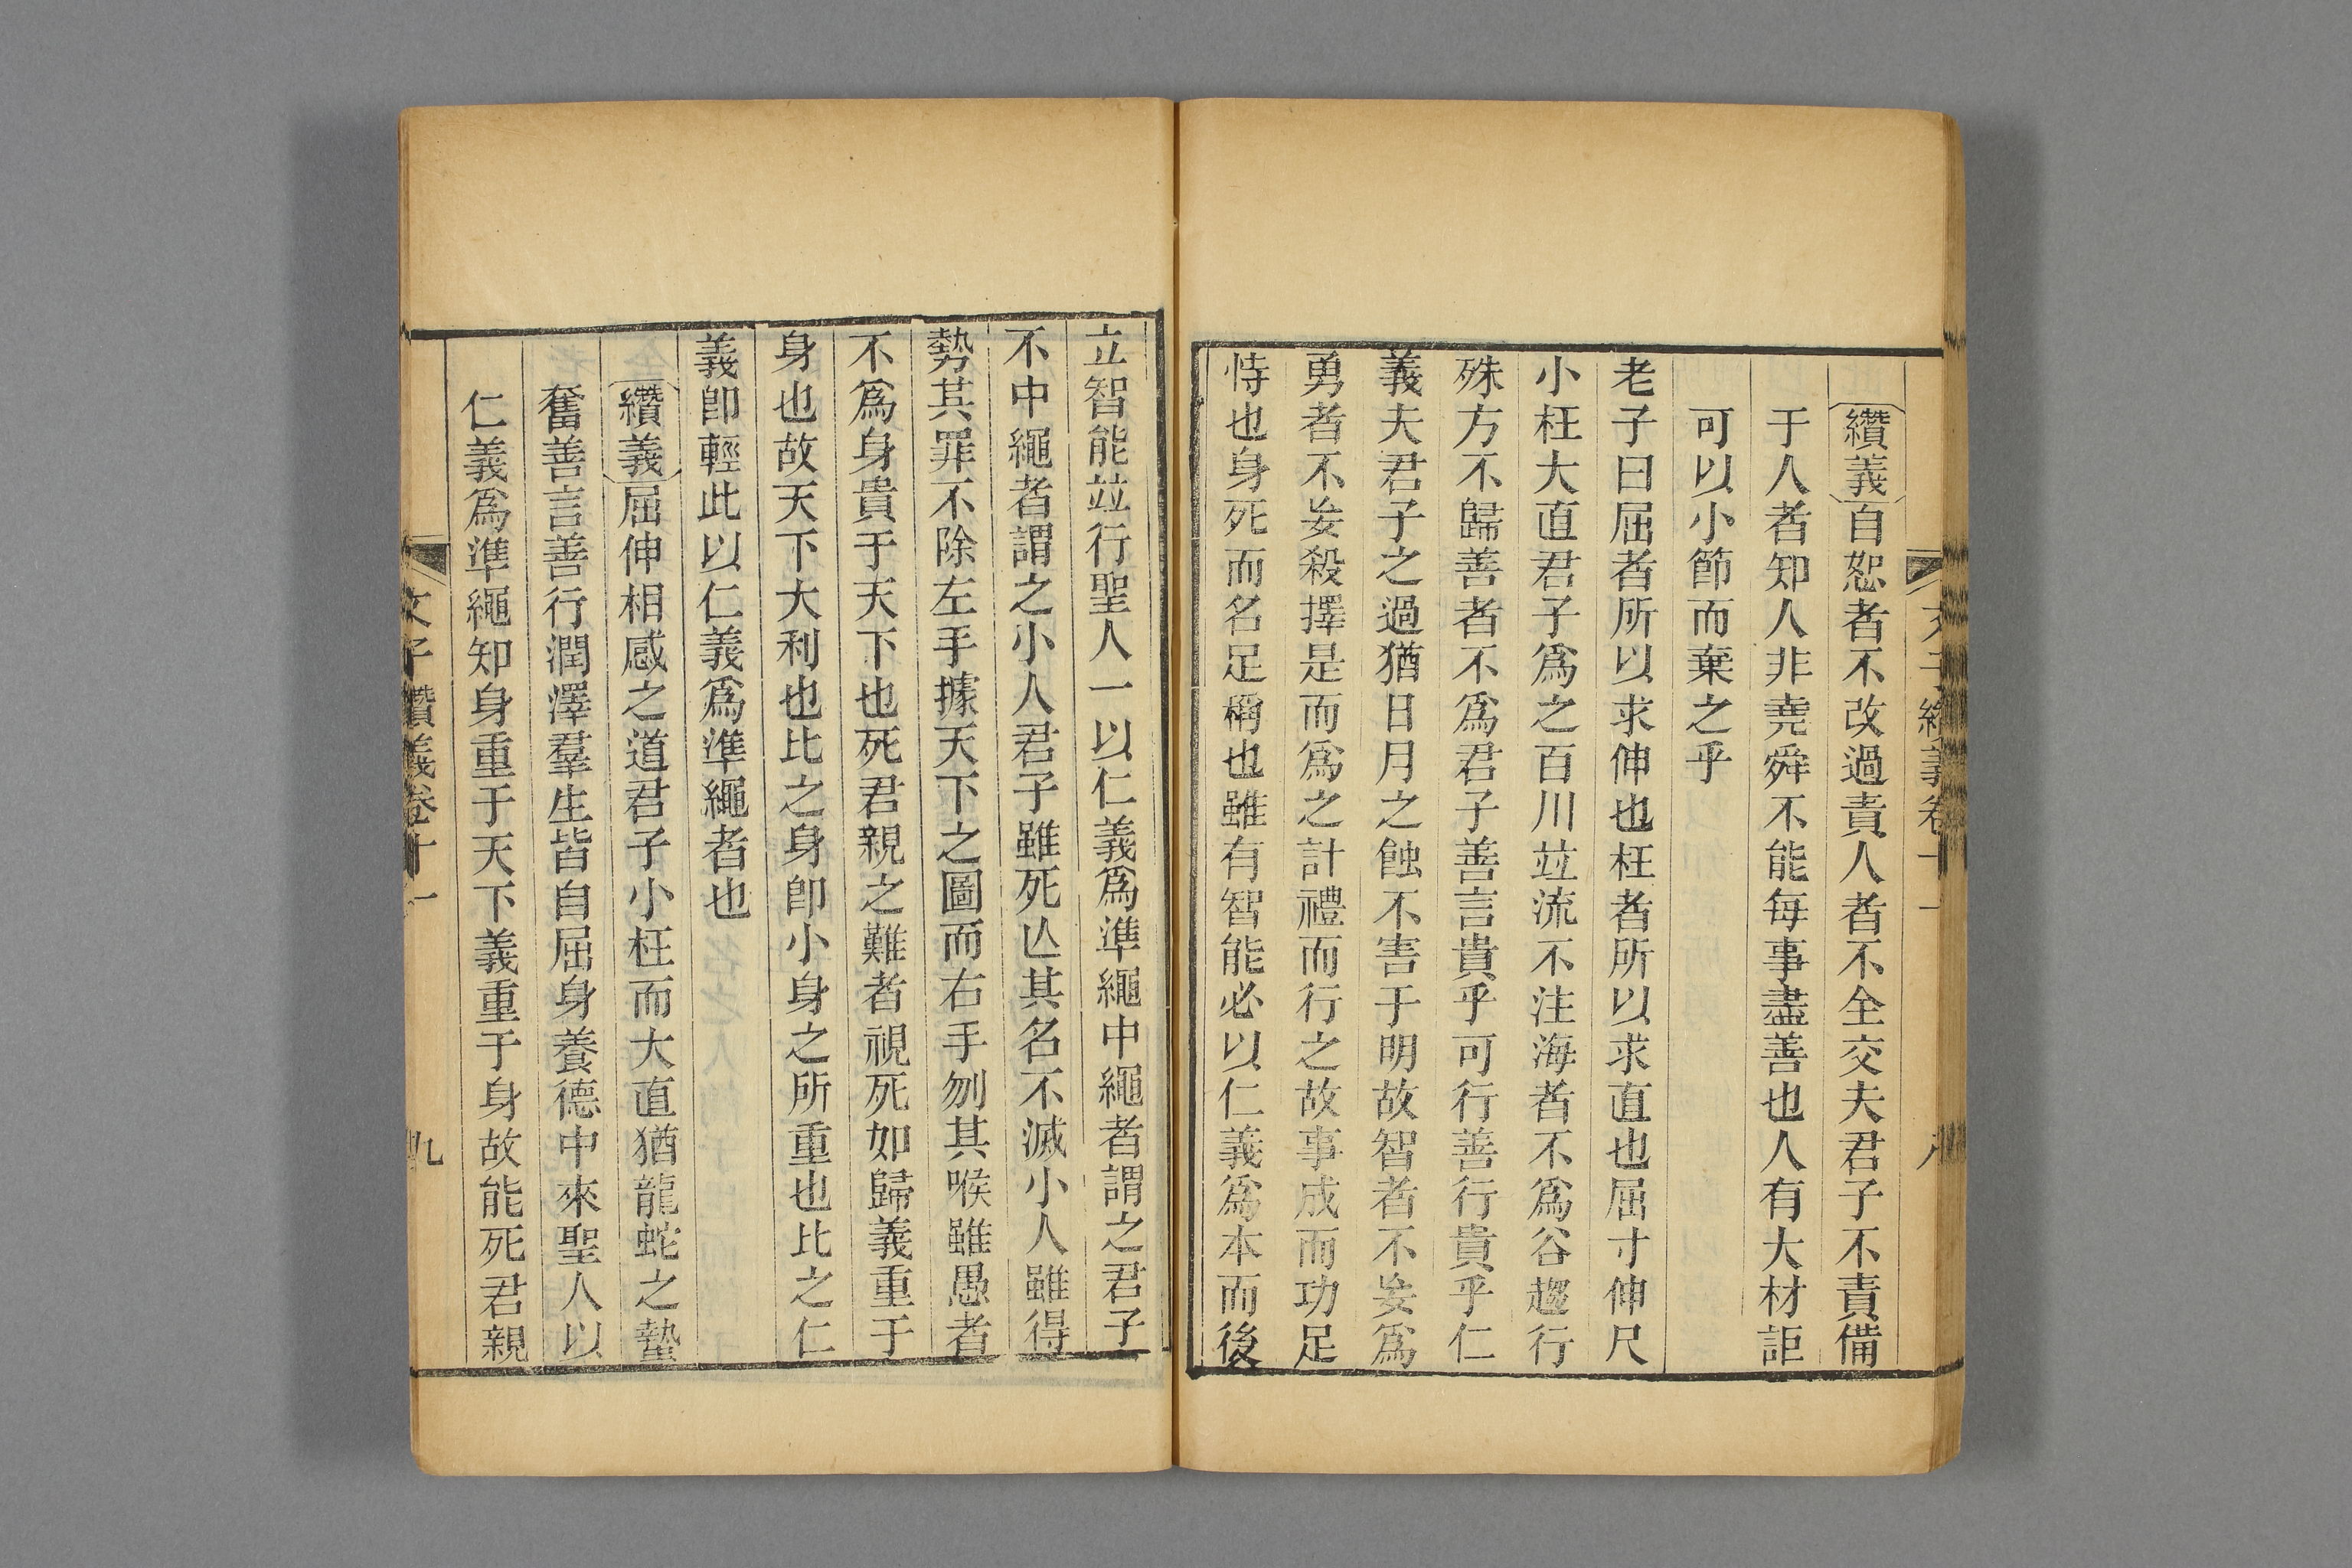 文子纘義卷十一 八
纘義自恕者不改過責人者不全交夫君子不責備
于人者知人非堯舜不能每事盡善也人有大材詎
可以小節而棄之乎
老子曰屈者所以求伸也枉者所以求直也屈寸伸尺
小枉大直君子爲之百川竝流不注海者不爲谷趨行
殊方不歸善者不爲君子善言貴乎可行善行貴乎仁
義夫君子之過猶日月之蝕不害于明故智者不妄爲
勇者不妄殺擇是而爲之計禮而行之故事成而功足
恃也身死而名足稱也雖有智能必以仁義爲本而後
立智能竝行聖人一以仁義爲準繩中繩者謂之君子
不中繩者謂之小人君子雖死亾其名不滅小人雖得
勢其罪不除左手據天下之圖而右手刎其喉雖愚者
不爲身貴于天下也死君親之難者視死如歸義重于
身也故天下大利也比之身卽小身之所重也比之仁
義卽輕此以仁義爲準繩者也
纘義屈伸相感之道君子小枉而大直猶龍蛇之蟄
奮善言善行潤澤羣生皆自屈身養德中來聖人以
仁義爲準繩知身重于天下義重于身故能死君親
文子纘義卷十一 九